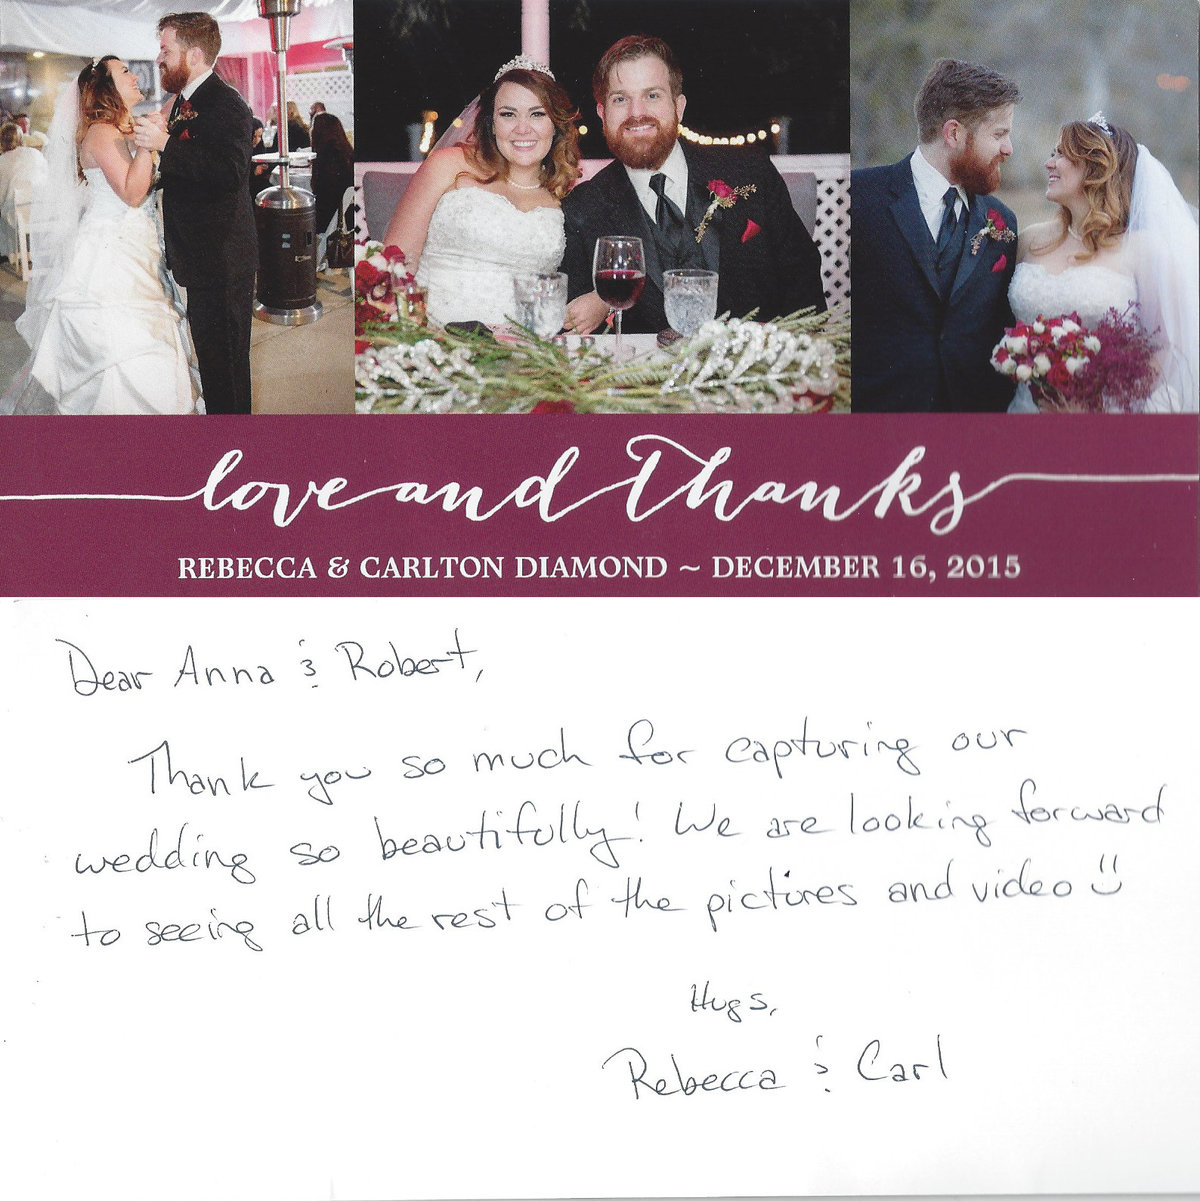 love and Thanks
REBECCA & CARLTON DIAMOND ~ DECEMBER 16, 2015
Dear Anna & Robert,
Thank you so much for capturing our
wedding so beautifully! We are looking forward
to seeing all the rest of the pictures and video :)
Hugs,
Rebecca & Carl